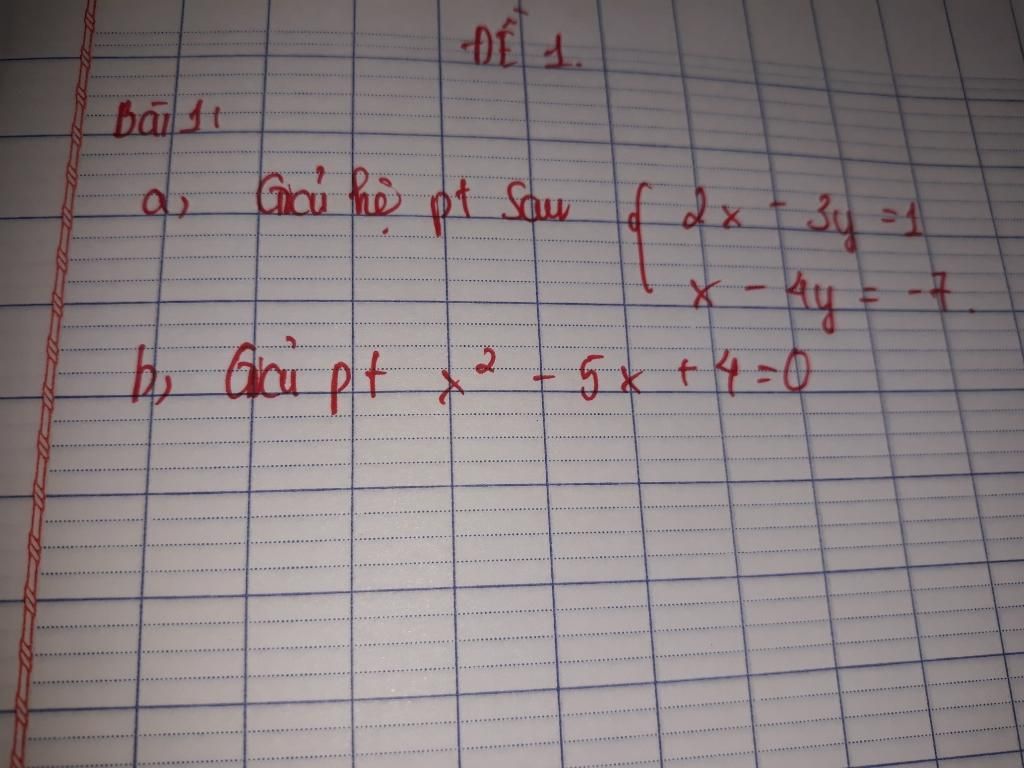 ĐỀ 1.
Bài 1:
a, Giải hệ pt sau { 2x - 3y = 1
x - 4y = -7.
b, Giải pt x² - 5x + 4 = 0